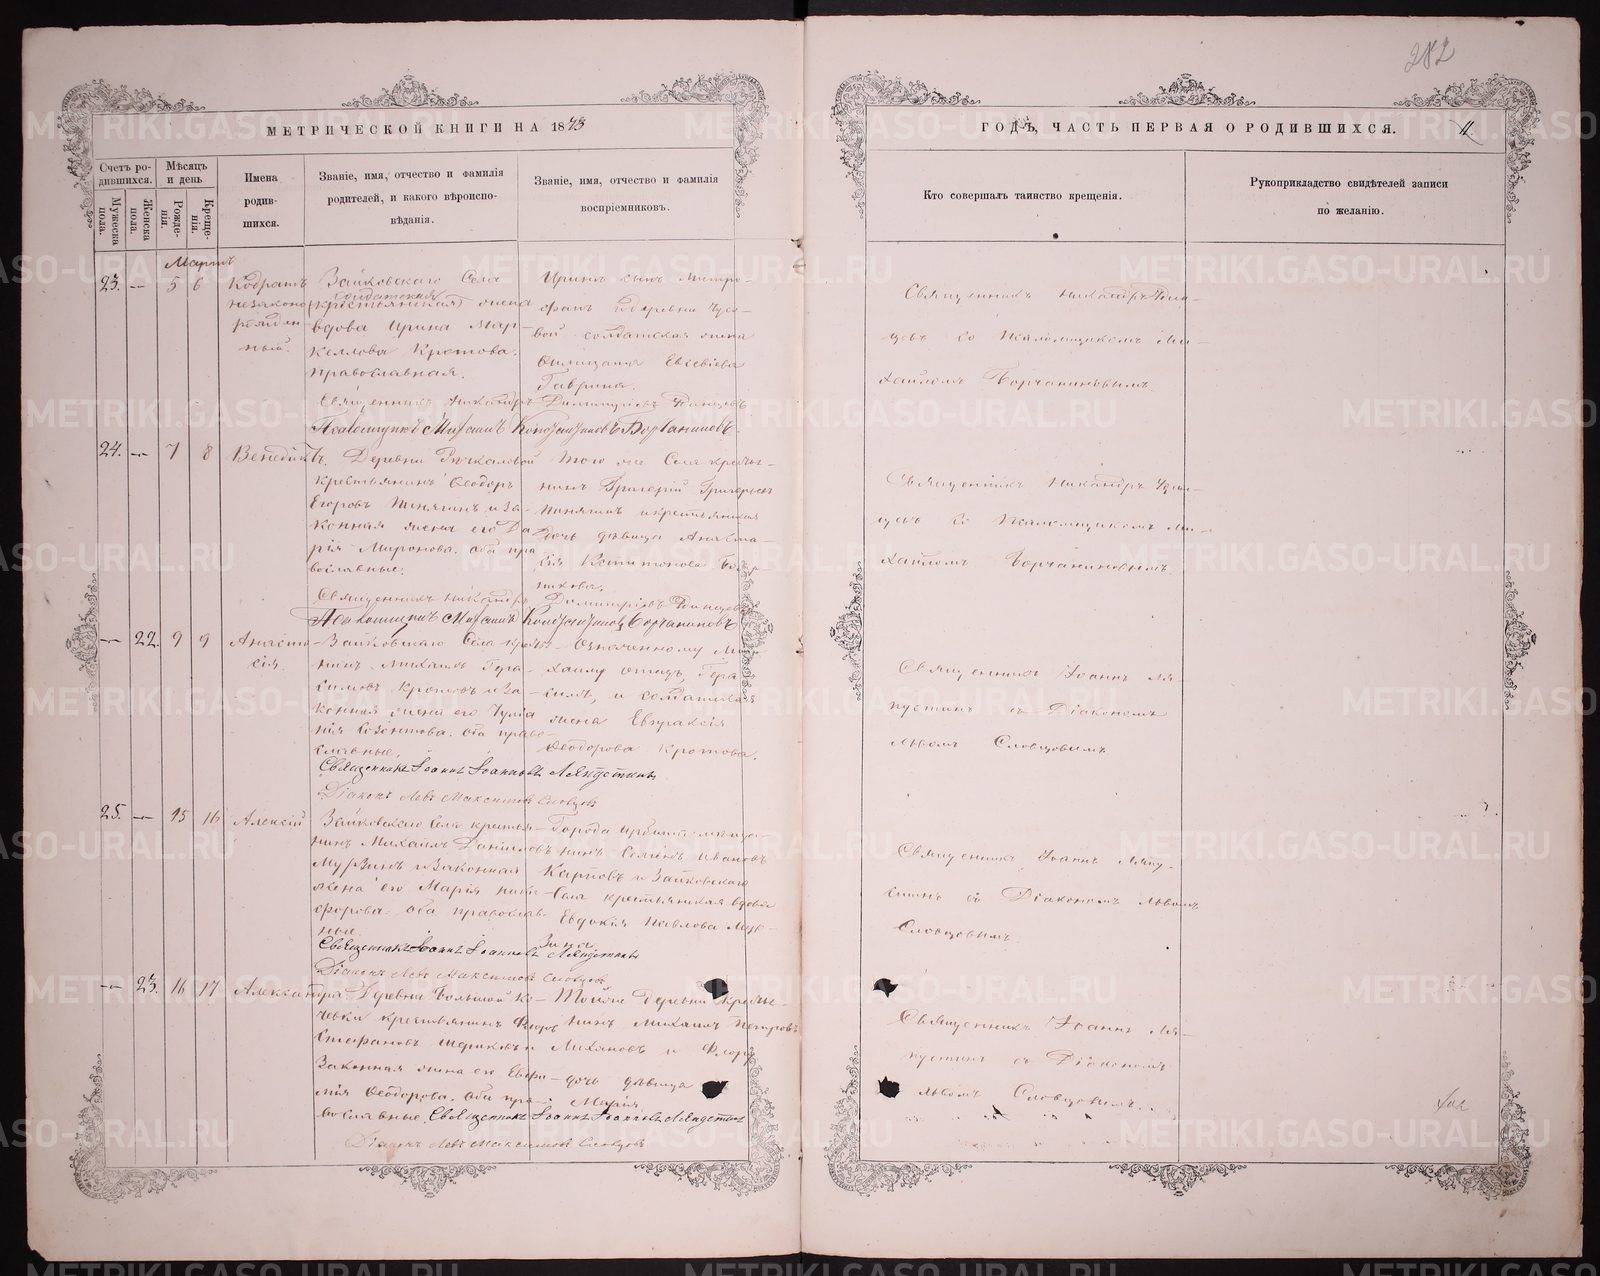 282
МЕТРИЧЕСКОЙ КНИГИ НА 1873
ГОДЪ, ЧАСТЬ ПЕРВАЯ О РОДИВШИХСЯ.
11.
Счетъ ро-
дившихся.
Мужеска
пола.
Женска
пола.
Мѣсяцъ
и день
Рожде-
нія.
Креще-
нія.
Имена
родив-
шихся.
Званіе, имя, отчество и фамилія
родителей, и какого вѣроиспо-
вѣданія.
Званіе, имя, отчество и фамилія
воспріемниковъ.
Кто совершалъ таинство крещенія.
Рукоприкладство свидѣтелей записи
по желанію.
Мартъ
23. — 5 6
Кодратъ
незаконо
рожден-
ный.
Зайковскаго Села
солдатская
(крестьянская) жена
вдова Ирина Мар-
келлова Кротова.
православная.
Ирины сынъ Митро-
фанъ деревни
вой солдатская жена
Евсевіева
Гаврина.
Священникъ Никандръ
со Псаломщикомъ Ми-
хаиломъ Борчаниновымъ.
Священникъ Никандръ Димитріевъ
Псаломщикъ Михаилъ Константиновъ Борчаниновъ.
24. — 7 8
Венедиктъ.
Деревни Речкаловой
крестьянинъ Ѳеодоръ
Егоровъ Шинягинъ и за-
конная жена его Да
рія Миронова. оба пра
вославные.
того же Села кресть-
нинъ Григорій Григорьев
Шинягинъ и крестьянская
дочь дѣвица Анаста-
сія
Священникъ Никандръ
со Псаломщикомъ Ми-
хаиломъ Борчаниновымъ.
Священникъ Никандръ Димитріевъ
Псаломщикъ Михаилъ Константиновъ Борчаниновъ
— 22. 9 9
Анаста-
сія.
Зайковскаго Села кресть-
нинъ Михаилъ Гера-
симовъ Кротовъ и за-
конная жена его Іулiа
нія Созонтова. оба право-
славные.
Означенному Ми-
хаилу отецъ, Гера
симъ, и солдатская
жена Евпраксія
Ѳеодорова Кротова.
Священникъ Іоаннъ Ля-
пустинъ съ Діакономъ
Львомъ Словцовымъ
Священникъ Іоаннъ Іоанновъ Ляпустинъ
Діаконъ Левъ Максимовъ Словцовъ
25. — 15 16
Алексій
Зайковскаго Села кресть
нинъ Михаилъ Даниловъ
Мурзинъ и законная
жена его Марія Ники-
форова. оба православ-
ные.
Города Ирбита мѣща-
нинъ Семенъ Ивановъ
Карповъ и Зайковскаго
Села крестьянская вдова
Евдокія Павлова Мур-
зина.
Священникъ Іоаннъ Ляпу-
стинъ съ Діакономъ Львомъ
Словцовымъ
Священникъ Іоаннъ Іоанновъ Ляпустинъ
Діаконъ Левъ Максимовъ Словцовъ
— 23. 16 17
Александра.
Деревни Большой Ко-
чевки крестьянинъ Ѳедоръ
Стефановъ и
Законная жена его Евфи-
мія Ѳеодорова. оба пра-
вославные.
Той же Деревни кресть-
нинъ Михаилъ Петровъ
Лихановъ и
дочь дѣвица
Марія
Священникъ Іоаннъ Ля-
пустинъ съ Діакономъ
Львомъ Словцовымъ.
Священникъ Іоаннъ Іоанновъ Ляпустинъ
Діаконъ Левъ Максимовъ Словцовъ
METRIKI.GASO-URAL.RU